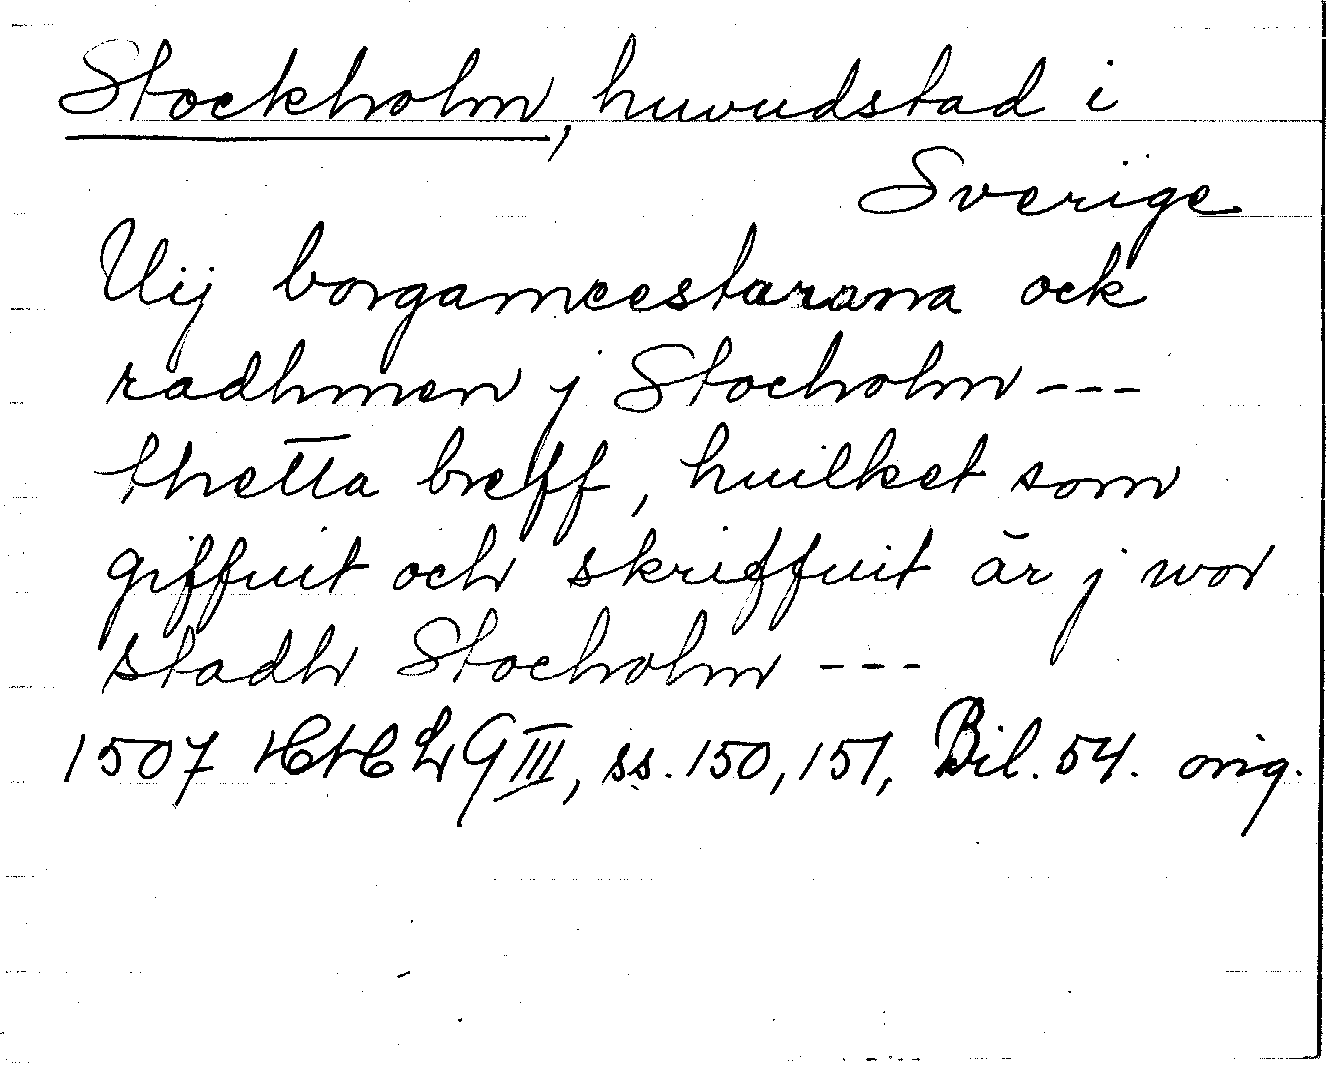 Stockholm, huvudstad i
Sverige
Vij borgameestarana ock
radhmen j Stocholm ---
thetta breff, huilket som
giffuit och skriffuit är j wor
stadh Stocholm ---
1507 HCHLG III, ss. 150, 151, Bil. 54. orig.